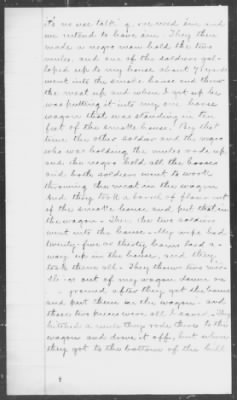 it's no use talk'g we need em and
we intend to have em. They then
made a negro man hold the two
mules, and one of the soldiers gal-
loped up to my house about
went into the smoke house and threw
the meat up and when I got up he
was putting it into my one horse
wagon that was standing in ten
feet of the smoke house. By this
time the other soldier and the negro
who was holding the mules rode up
and the negro hold all the horses
and both soldiers went to work
throwing the meat in the wagon
And they took a barrel of flour out
of the smoke house and put that in
the wagon. Then the two soldiers
went into the house. My wife had
twenty-five or thirty hams laid a-
way up in the house, and they
took them all. They threw two
out of my wagon down on
ground after they got the hams
and put them in the wagon and
those two pieces were all I saved. They
hitched a mule they rode there to the
wagon and drove it off, but when
they got to the bottom of the hill